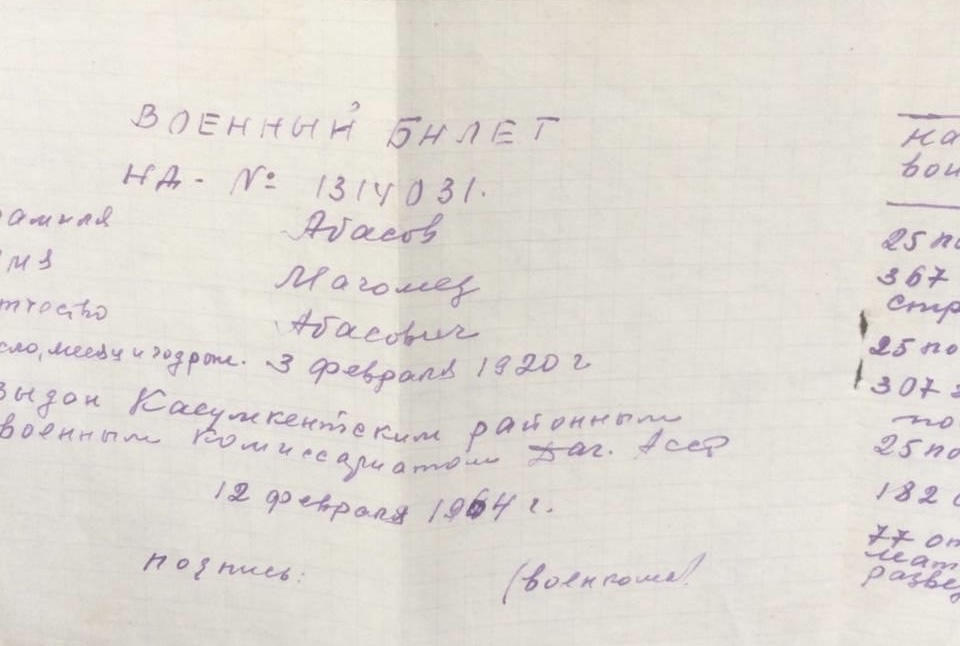 ВОЕННЫЙ БИЛЕТ
НД - № 1314031.
амиля Абасов
мя Магомед
тчество Абасович
сло, месяц и год рож. 3 февраля 1920 г
Выдан Касумкентским районным
военным комиссариатом Даг. Асср
12 февраля 1964 г.
подпись: (военкома)
на
вои
25 по
367
стр
25 по
307 з
по
25 по
182 с
77 от
мат
развед